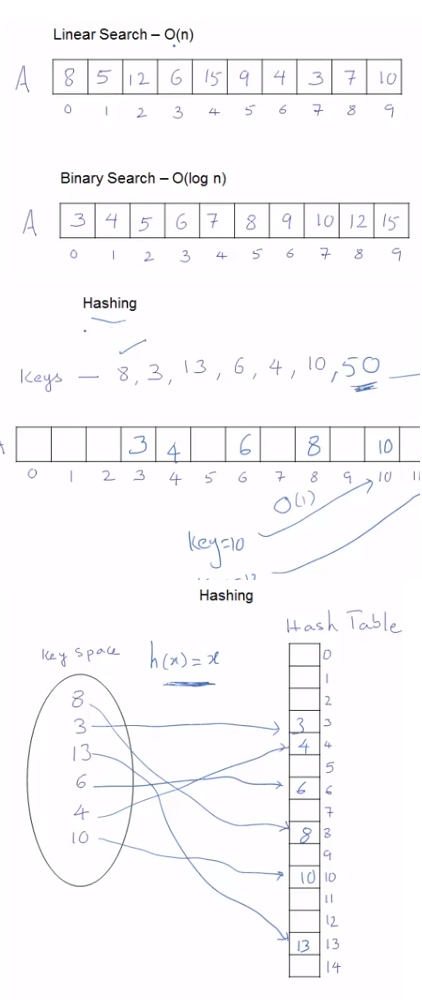 Linear Search – O(n)
A 8 5 12 6 15 9 4 3 7 10
0 1 2 3 4 5 6 7 8 9
Binary Search – O(log n)
A 3 4 5 6 7 8 9 10 12 15
0 1 2 3 4 5 6 7 8 9
Hashing
Keys — 8, 3, 13, 6, 4, 10, 50
3 4 6 8 10
0 1 2 3 4 5 6 7 8 9 10
O(1)
Key=10
Hashing
Hash Table
Key Space h(x) = x
0
1
2
8
3 3 3
13 4 4
5
6 6 6
7
4 8 8
10 9
10 10
11
12
13 13
14